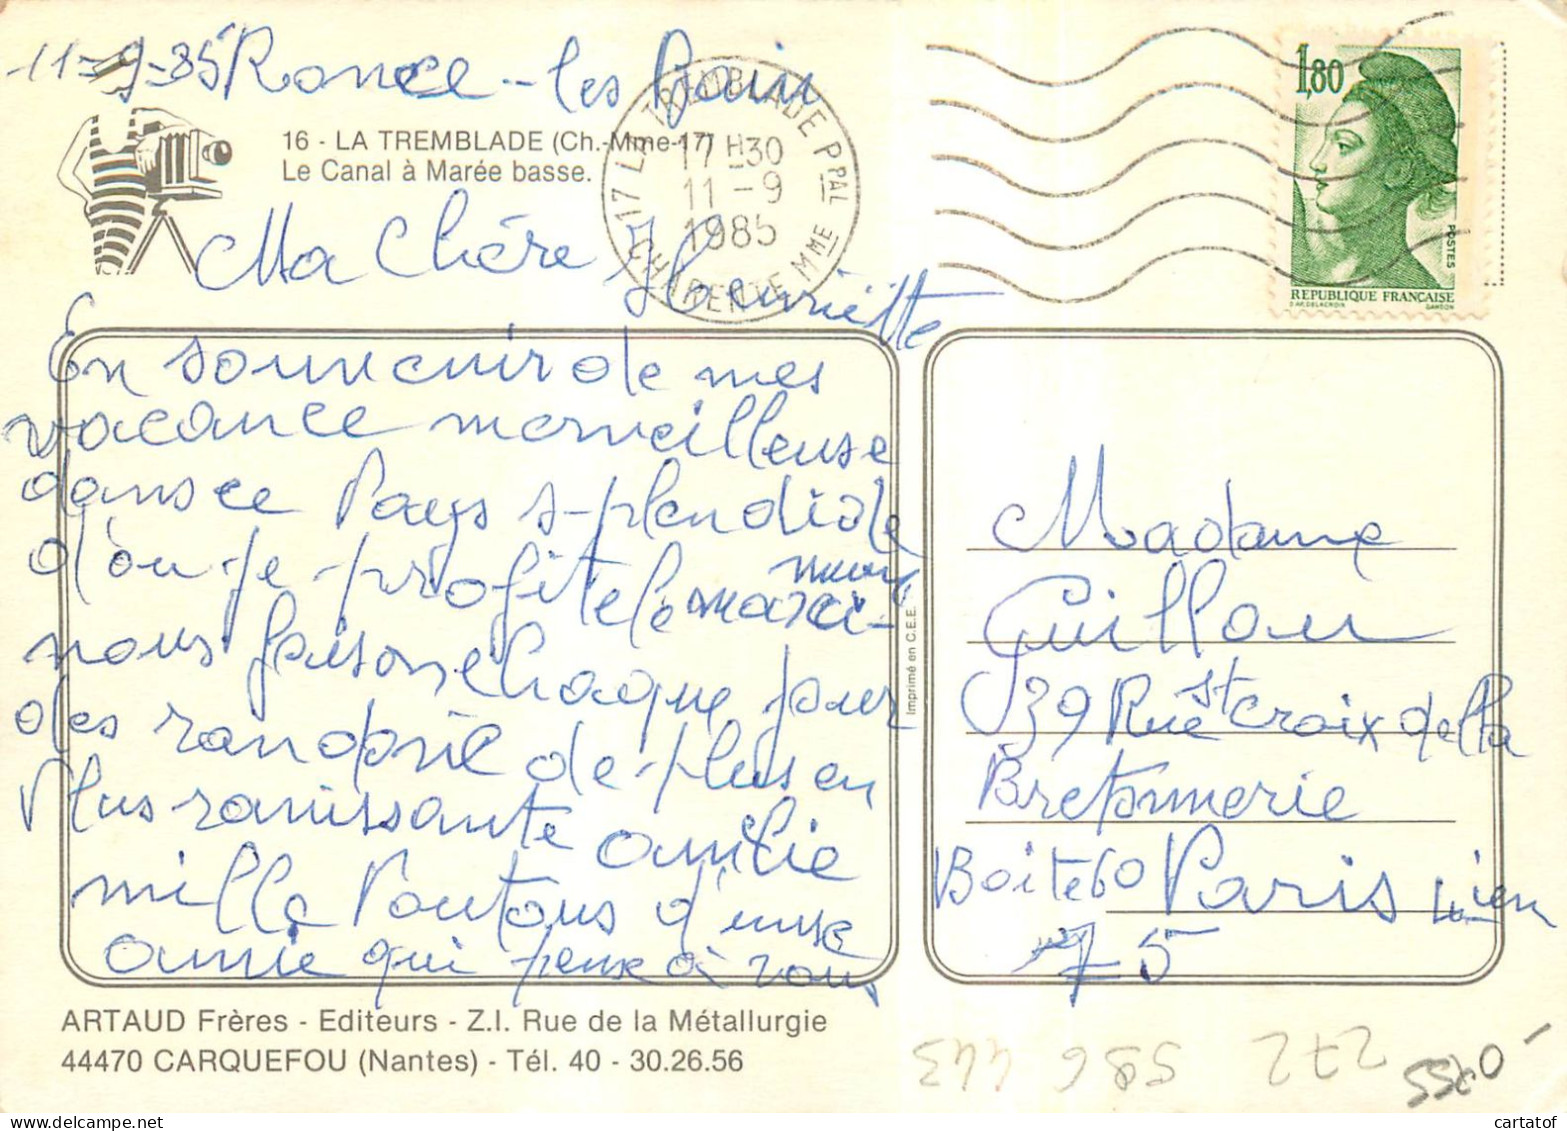 11-9-85 Ronce-les Bain
16 - LA TREMBLADE (Ch.-Mme-17)
Le Canal à Marée basse.
17 LA TREMBLADE Ppal
17 H 30
11 - 9
1985
CHARENTE Mme
1,80
POSTES
REPUBLIQUE FRANÇAISE
Ma Chère Henriette
En souvenir de mes
vacance merveilleuse
dans ce Pays splendide
d'ou je profite le maxi-
nous faison chaque jour
des randoné de plus en
Plus ravissante amitie
mille Pontous d'une
amie qui pense à vous
Imprimé en C.E.E.
Madame
Guillou
39 Rue Ste croix de la
Bretonnerie
Boite 60 Paris 4 ien
75
ARTAUD Frères - Editeurs - Z.I. Rue de la Métallurgie
44470 CARQUEFOU (Nantes) - Tél. 40 - 30.26.56
272 586 443
cartatof